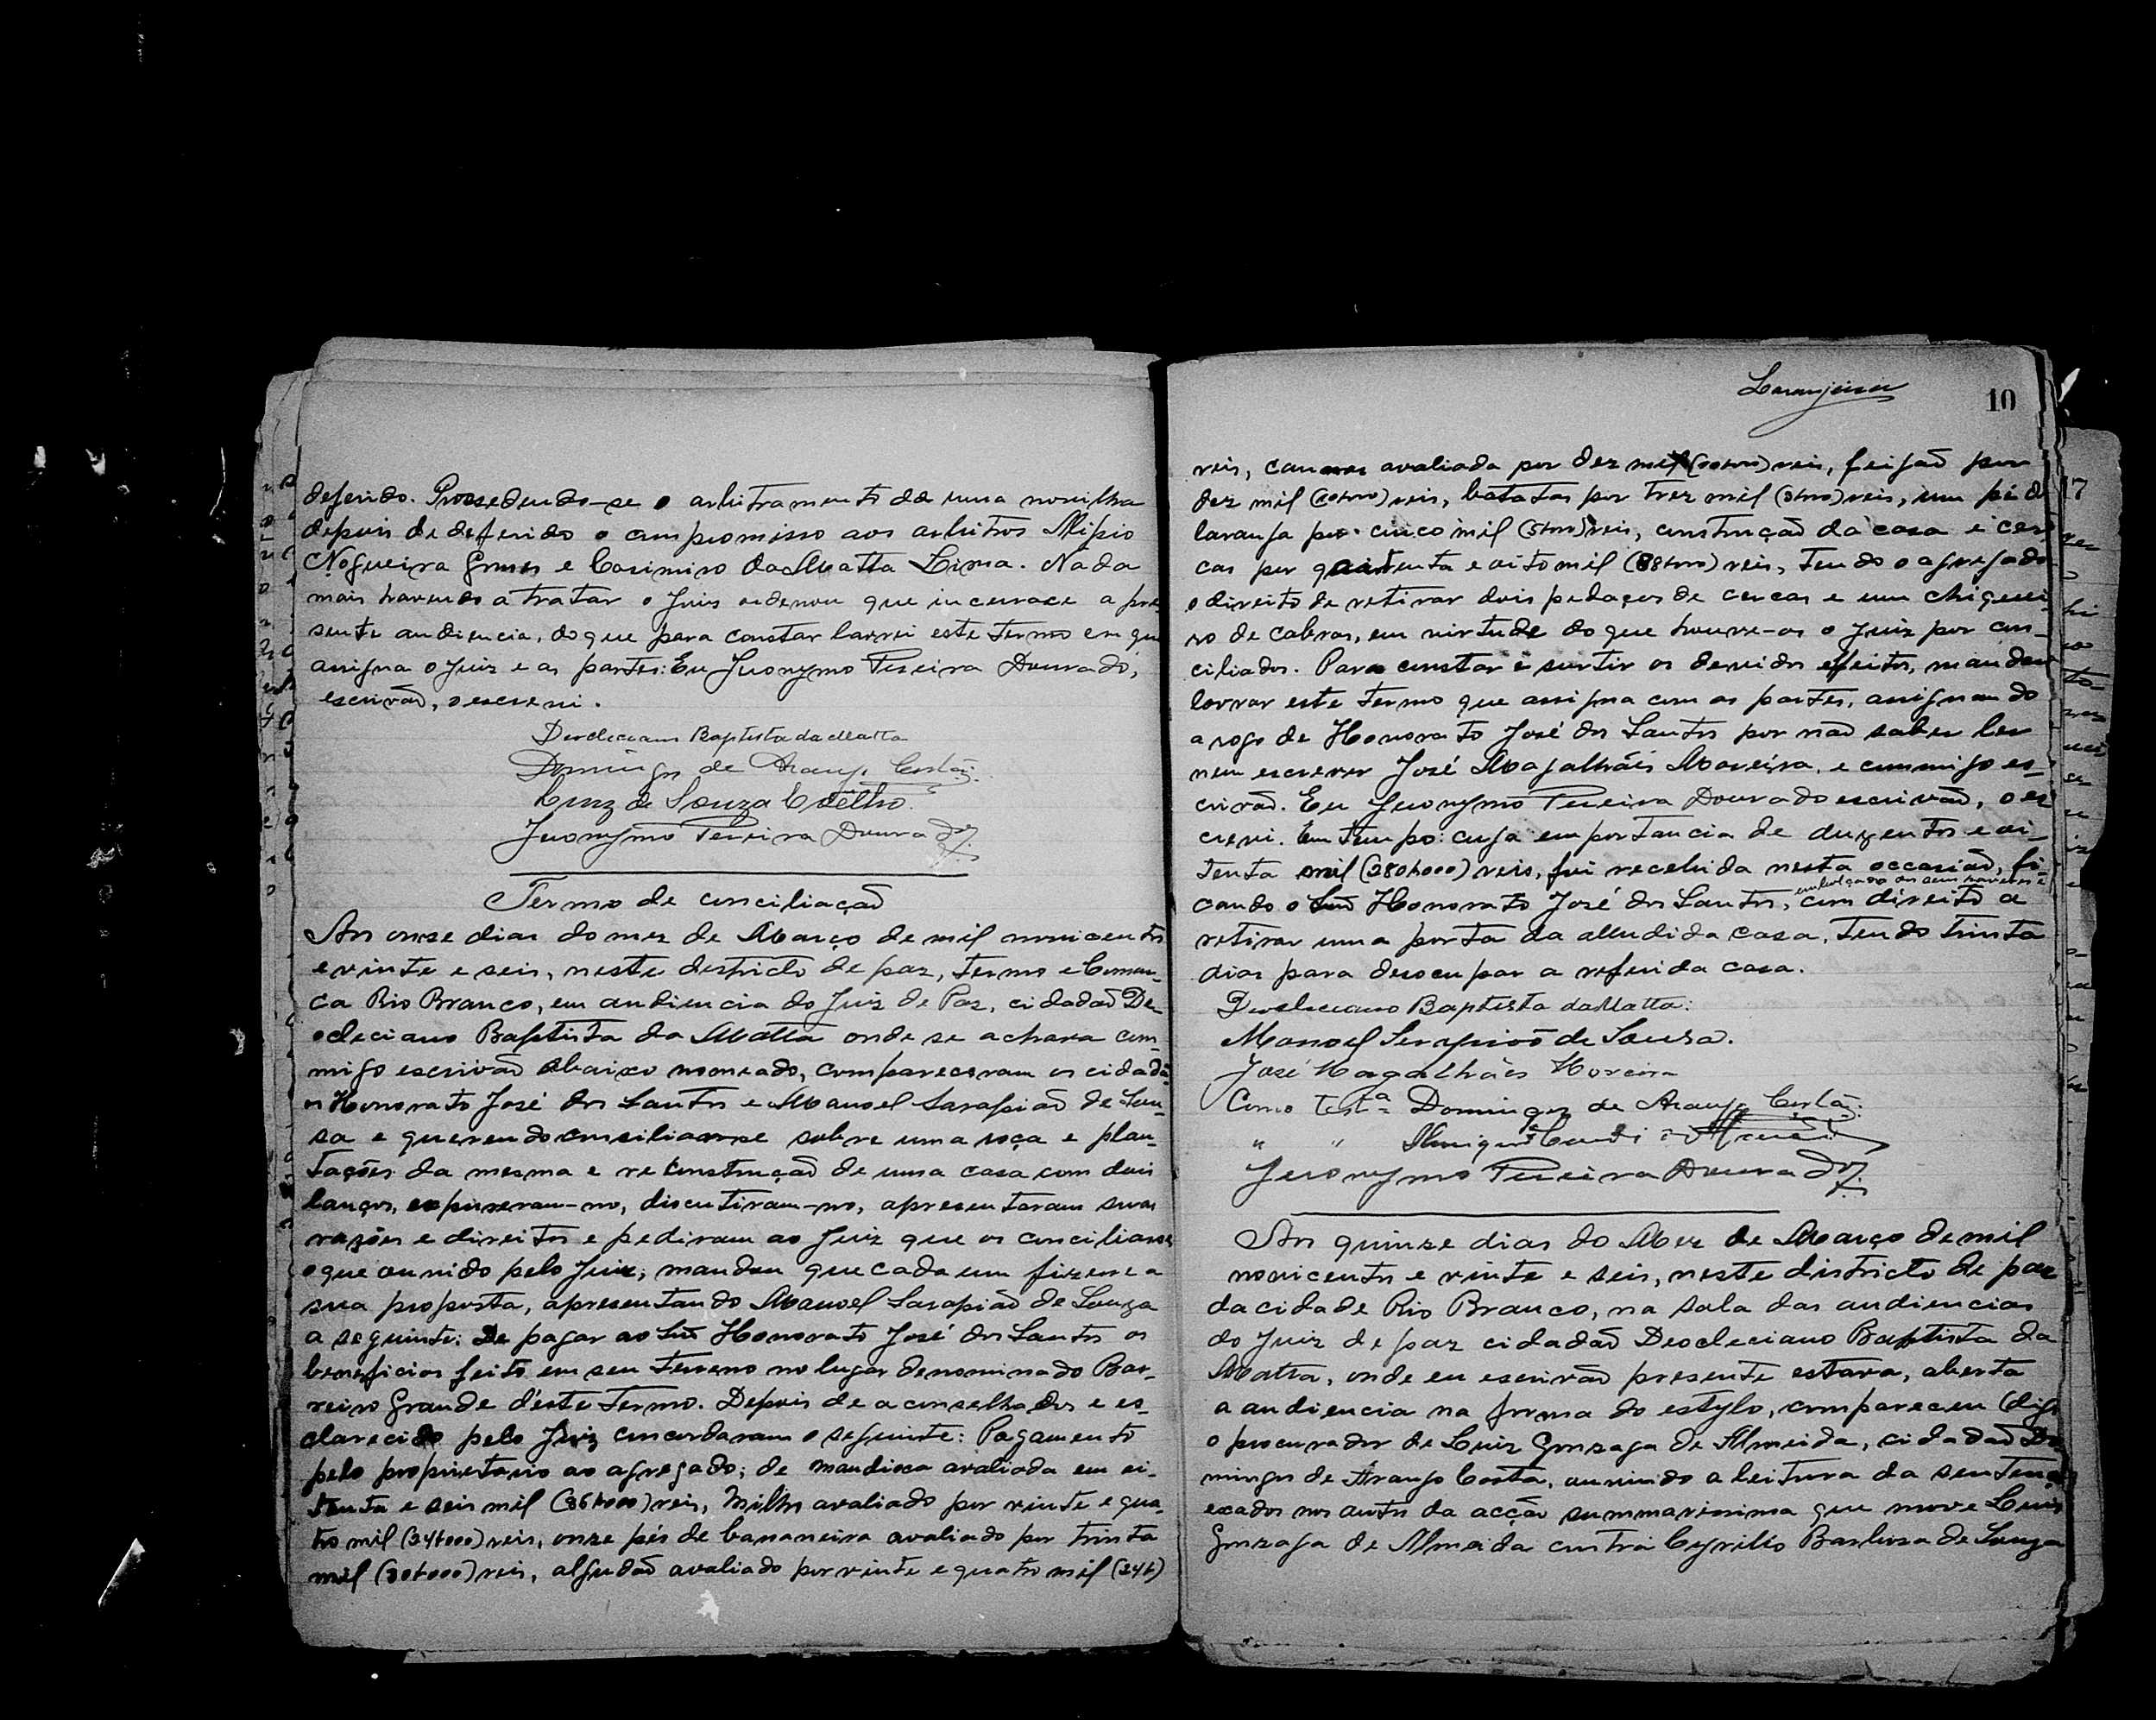 deferido. Prossedendo-se o arbitramento da uma novilha
depois de defferido o compromisso aos arbitros Alipio
Nogueira Gomes e Casimiro da Matta Lima. Nada
mais havendo a tratar o Juiz ordenou que incerrace a pre
sente audiencia, do que para constar lavrei este termo em que
assigna o Juiz e as partes: Eu Jeronymo Pereira Dourado,
escrivão, o escrevi.
Deocleciano Baptista da Matta
Domingos de Araujo Costa
Luiz de Souza Coêlho.
Jeronymo Pereira Dourado
Termo de conciliação
Aos onse dias do mez de Março de mil novicentos
e vinte e seis, neste destricto de paz, termo e Comar-
ca Rio Branco, em audiencia do Juiz de Paz, cidadão De-
ocleciano Baptista da Matta onde se achava com-
migo escrivão abaixo nomeado, compareceram os cidadã-
os Honorato José dos Santos e Manoel Sarapião de Sou-
sa e querendo consiliarse sobre uma roça e plan-
tações da mesma e reconstrução de uma casa com dois
lanços, expuseram-no, discutiram-no, apresentaram suas
razões e direitos e pediram ao Juiz que os conciliasse
o que ouvido pelo Juiz; mandou que cada um fizesse a
sua proposta, apresentando Manoel Sarapião de Souza
a seguinte: De pagar ao Honorato José dos Santos os
beneficios feito em seu terreno no lugar denominado Bar-
reiro Grande d'éste termo. Depois de aconselhados e es-
clarecido pelo Juiz concordaram o seguinte: Pagamento
pelo proprietario ao agregado; de mandioca avaliada em oi-
tenta e seis mil (86$000) reis, milho avaliado por vinte e qua-
tro mil (24$000) reis, onze pés de bananeira avaliado por trinta
mil (30$000) reis, algudão avaliado por vinte e quatro mil (24$)
Laranjeira
10
reis, cannas avaliada por dez mil (10$000) reis, feijão por
dez mil (10$000) reis, batatas por trez mil (3$000) reis, um pé de
laranja por cinco mil (5$000) reis, construção da casa e cer
cas por e oito mil (88$000) reis, tendo o agregado
o direito de retirar dois pedaços de cercas e um chiquei-
ro de cabras, em virtude do que houve-os o Juiz por con-
ciliados. Para constar e surtir os devidos effeitos, mandou
lavrar este termo que assigna com as partes, assignando
a rogo de Honorato José dos Santos por não saber ler
nem escrever José Magalhães Moreira, e commigo es-
crivão. Eu Jeronymo Pereira Dourado escrivão, o es
crevi. Em tempo: cuja emportancia de duzentos e oi-
tenta mil (280$000) reis, foi recebida nesta occasião, fi-
embolçado os seus haveres e
cando o Honorato José dos Santos, com direito a
retirar uma porta da alludida casa, tendo trinta
dias para desocupar a referida casa.
Deocleciano Baptista da Matta:
Manoel Serapião de Sousa.
José Magalhães Moreira
Como testa Domingos de Araujo Costa
" "
Jeronymo Pereira Dourado
Aos quinse dias do Mez de Março de mil
novicentos e vinte e seis, neste districto de paz
da cidade Rio Branco, na sala das audiencias
do Juiz de paz cidadão Deocleciano Baptista da
Matta, onde eu escrivão presente estava, aberta
a audiencia na forma do estylo, compareceu (digo
o procurador de Luiz Gonzaga de Almeida, cidadão Do
mingos de Araujo Costa, ouvindo a leitura da sentença
exados nos autos da acção summarissima que move Luiz
Gonzaga de Almeida contra Cyrillo Barbosa de Souza